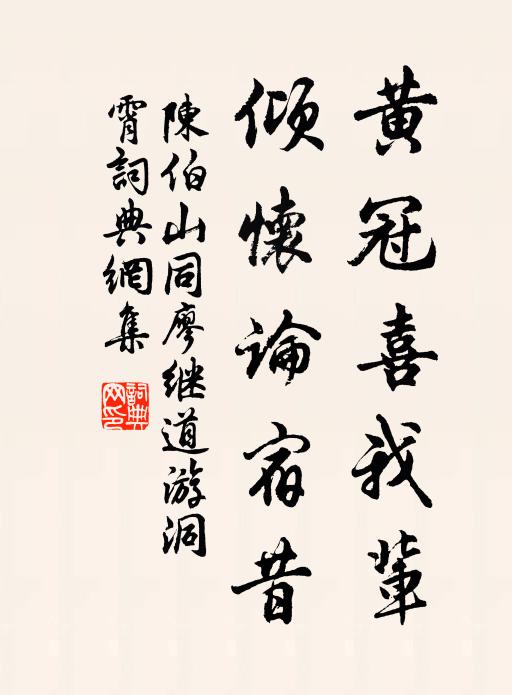 黄冠喜我輩
傾懷論宿昔
陳伯山同廖继道游洞
霄詞典網集
詞典網印